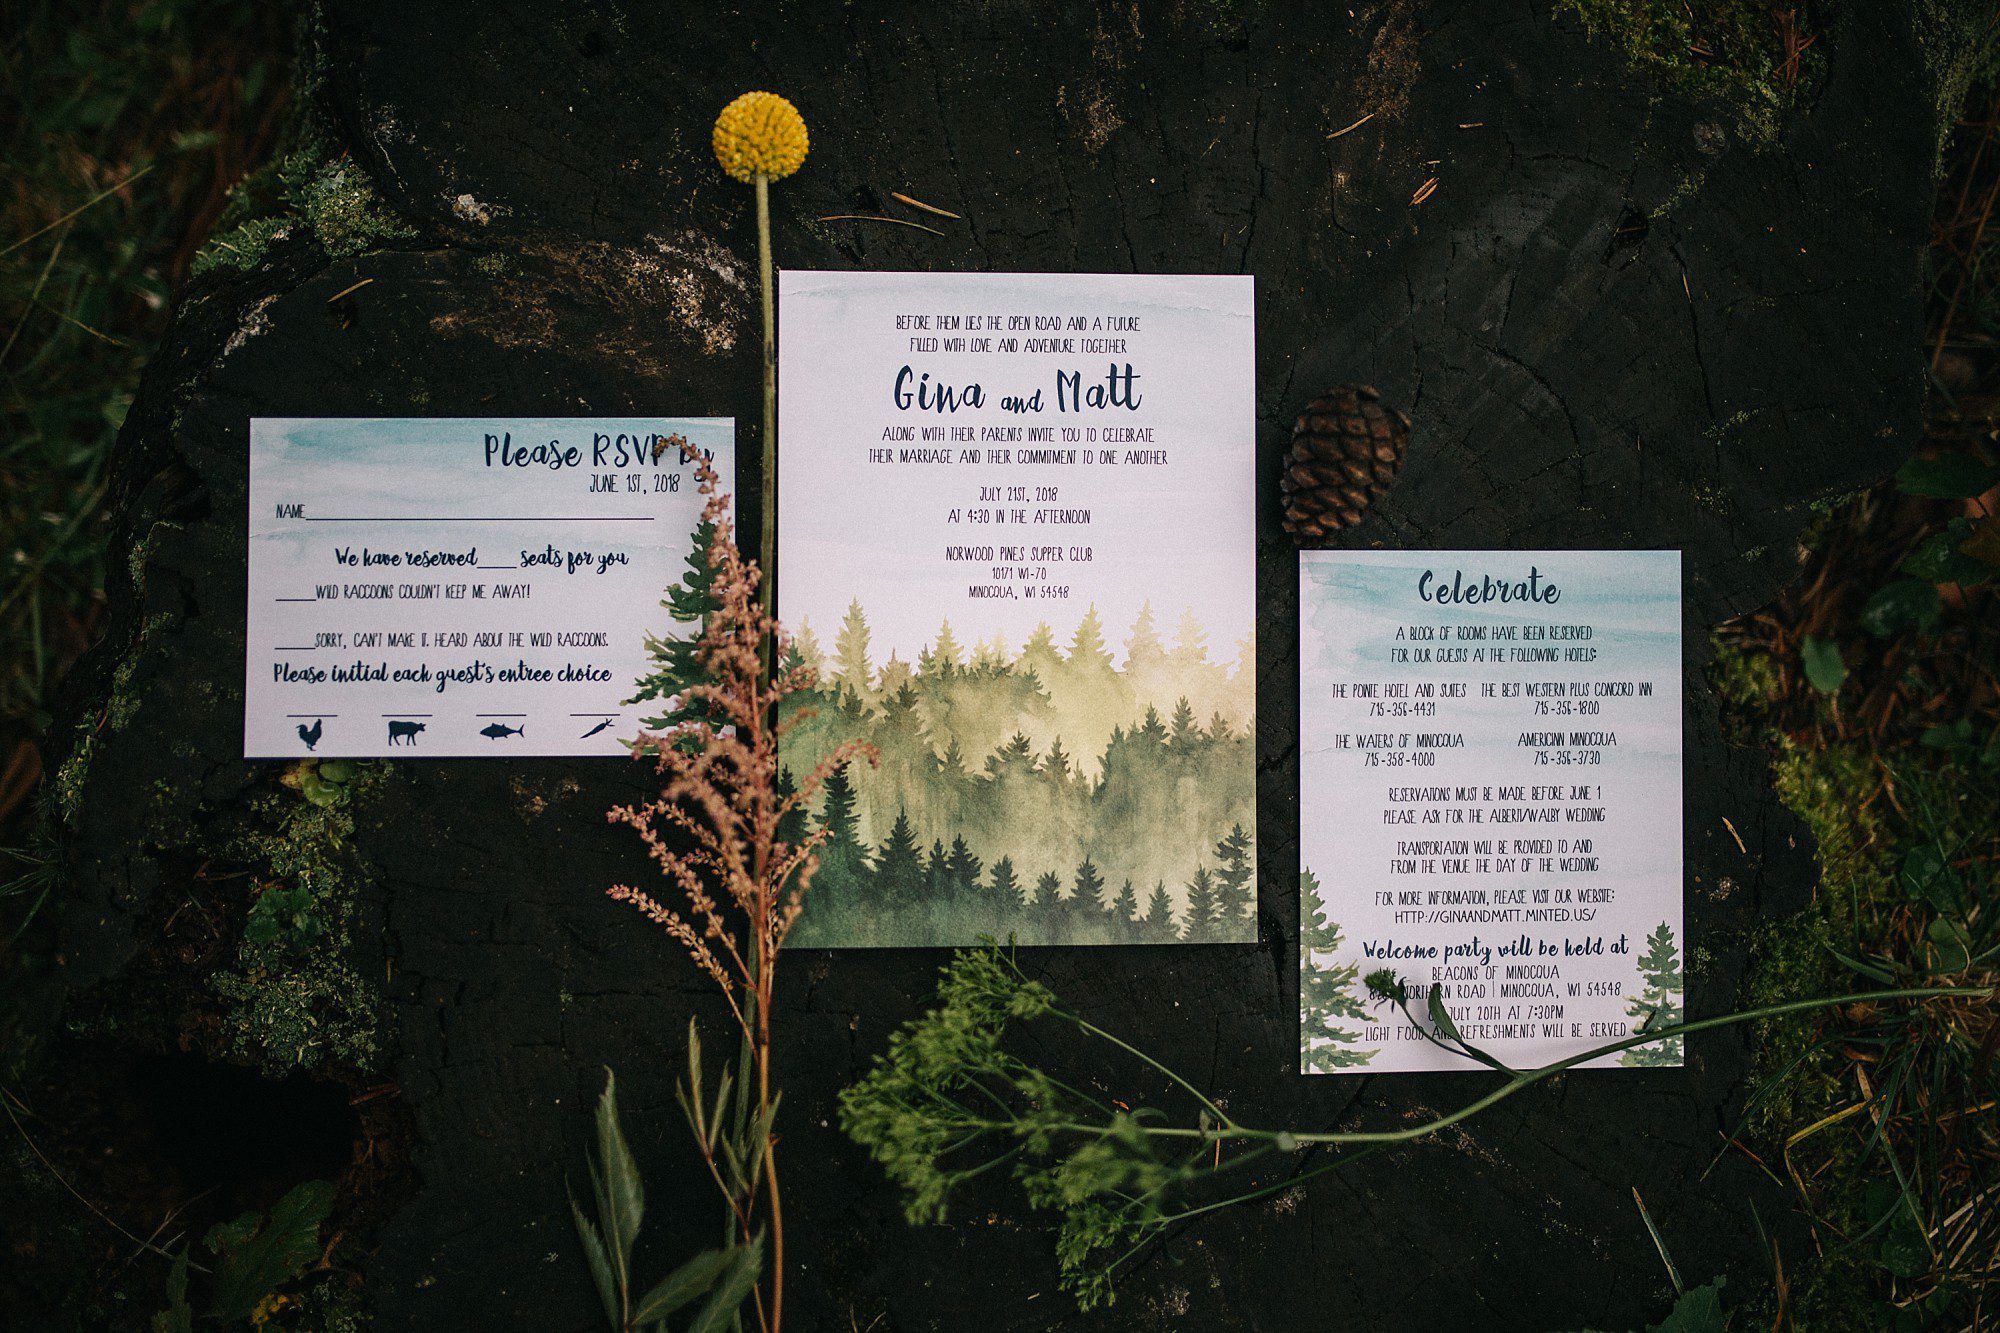 Please RSVP by
JUNE 1ST, 2018
NAME
We have reserved____ seats for you
____WILD RACCOONS COULDN'T KEEP ME AWAY!
____SORRY, CAN'T MAKE IT. HEARD ABOUT THE WILD RACCOONS.
Please initial each guest's entree choice
BEFORE THEM LIES THE OPEN ROAD AND A FUTURE
FILLED WITH LOVE AND ADVENTURE TOGETHER
Gina and Matt
ALONG WITH THEIR PARENTS INVITE YOU TO CELEBRATE
THEIR MARRIAGE AND THEIR COMMITMENT TO ONE ANOTHER
JULY 21ST, 2018
AT 4:30 IN THE AFTERNOON
NORWOOD PINES SUPPER CLUB
10171 WI-70
MINOCQUA, WI 54548
Celebrate
A BLOCK OF ROOMS HAVE BEEN RESERVED
FOR OUR GUESTS AT THE FOLLOWING HOTELS:
THE POINTE HOTEL AND SUITES THE BEST WESTERN PLUS CONCORD INN
715-356-4431 715-356-1800
THE WATERS OF MINOCQUA AMERICINN MINOCQUA
715-358-4000 715-356-3730
RESERVATIONS MUST BE MADE BEFORE JUNE 1
PLEASE ASK FOR THE ALBERTI/WALBY WEDDING
TRANSPORTATION WILL BE PROVIDED TO AND
FROM THE VENUE THE DAY OF THE WEDDING
FOR MORE INFORMATION, PLEASE VISIT OUR WEBSITE:
HTTP://GINAANDMATT.MINTED.US/
Welcome party will be held at
BEACONS OF MINOCQUA
NORTHERN ROAD | MINOCQUA, WI 54548
JULY 20TH AT 7:30PM
LIGHT FOOD AND REFRESHMENTS WILL BE SERVED